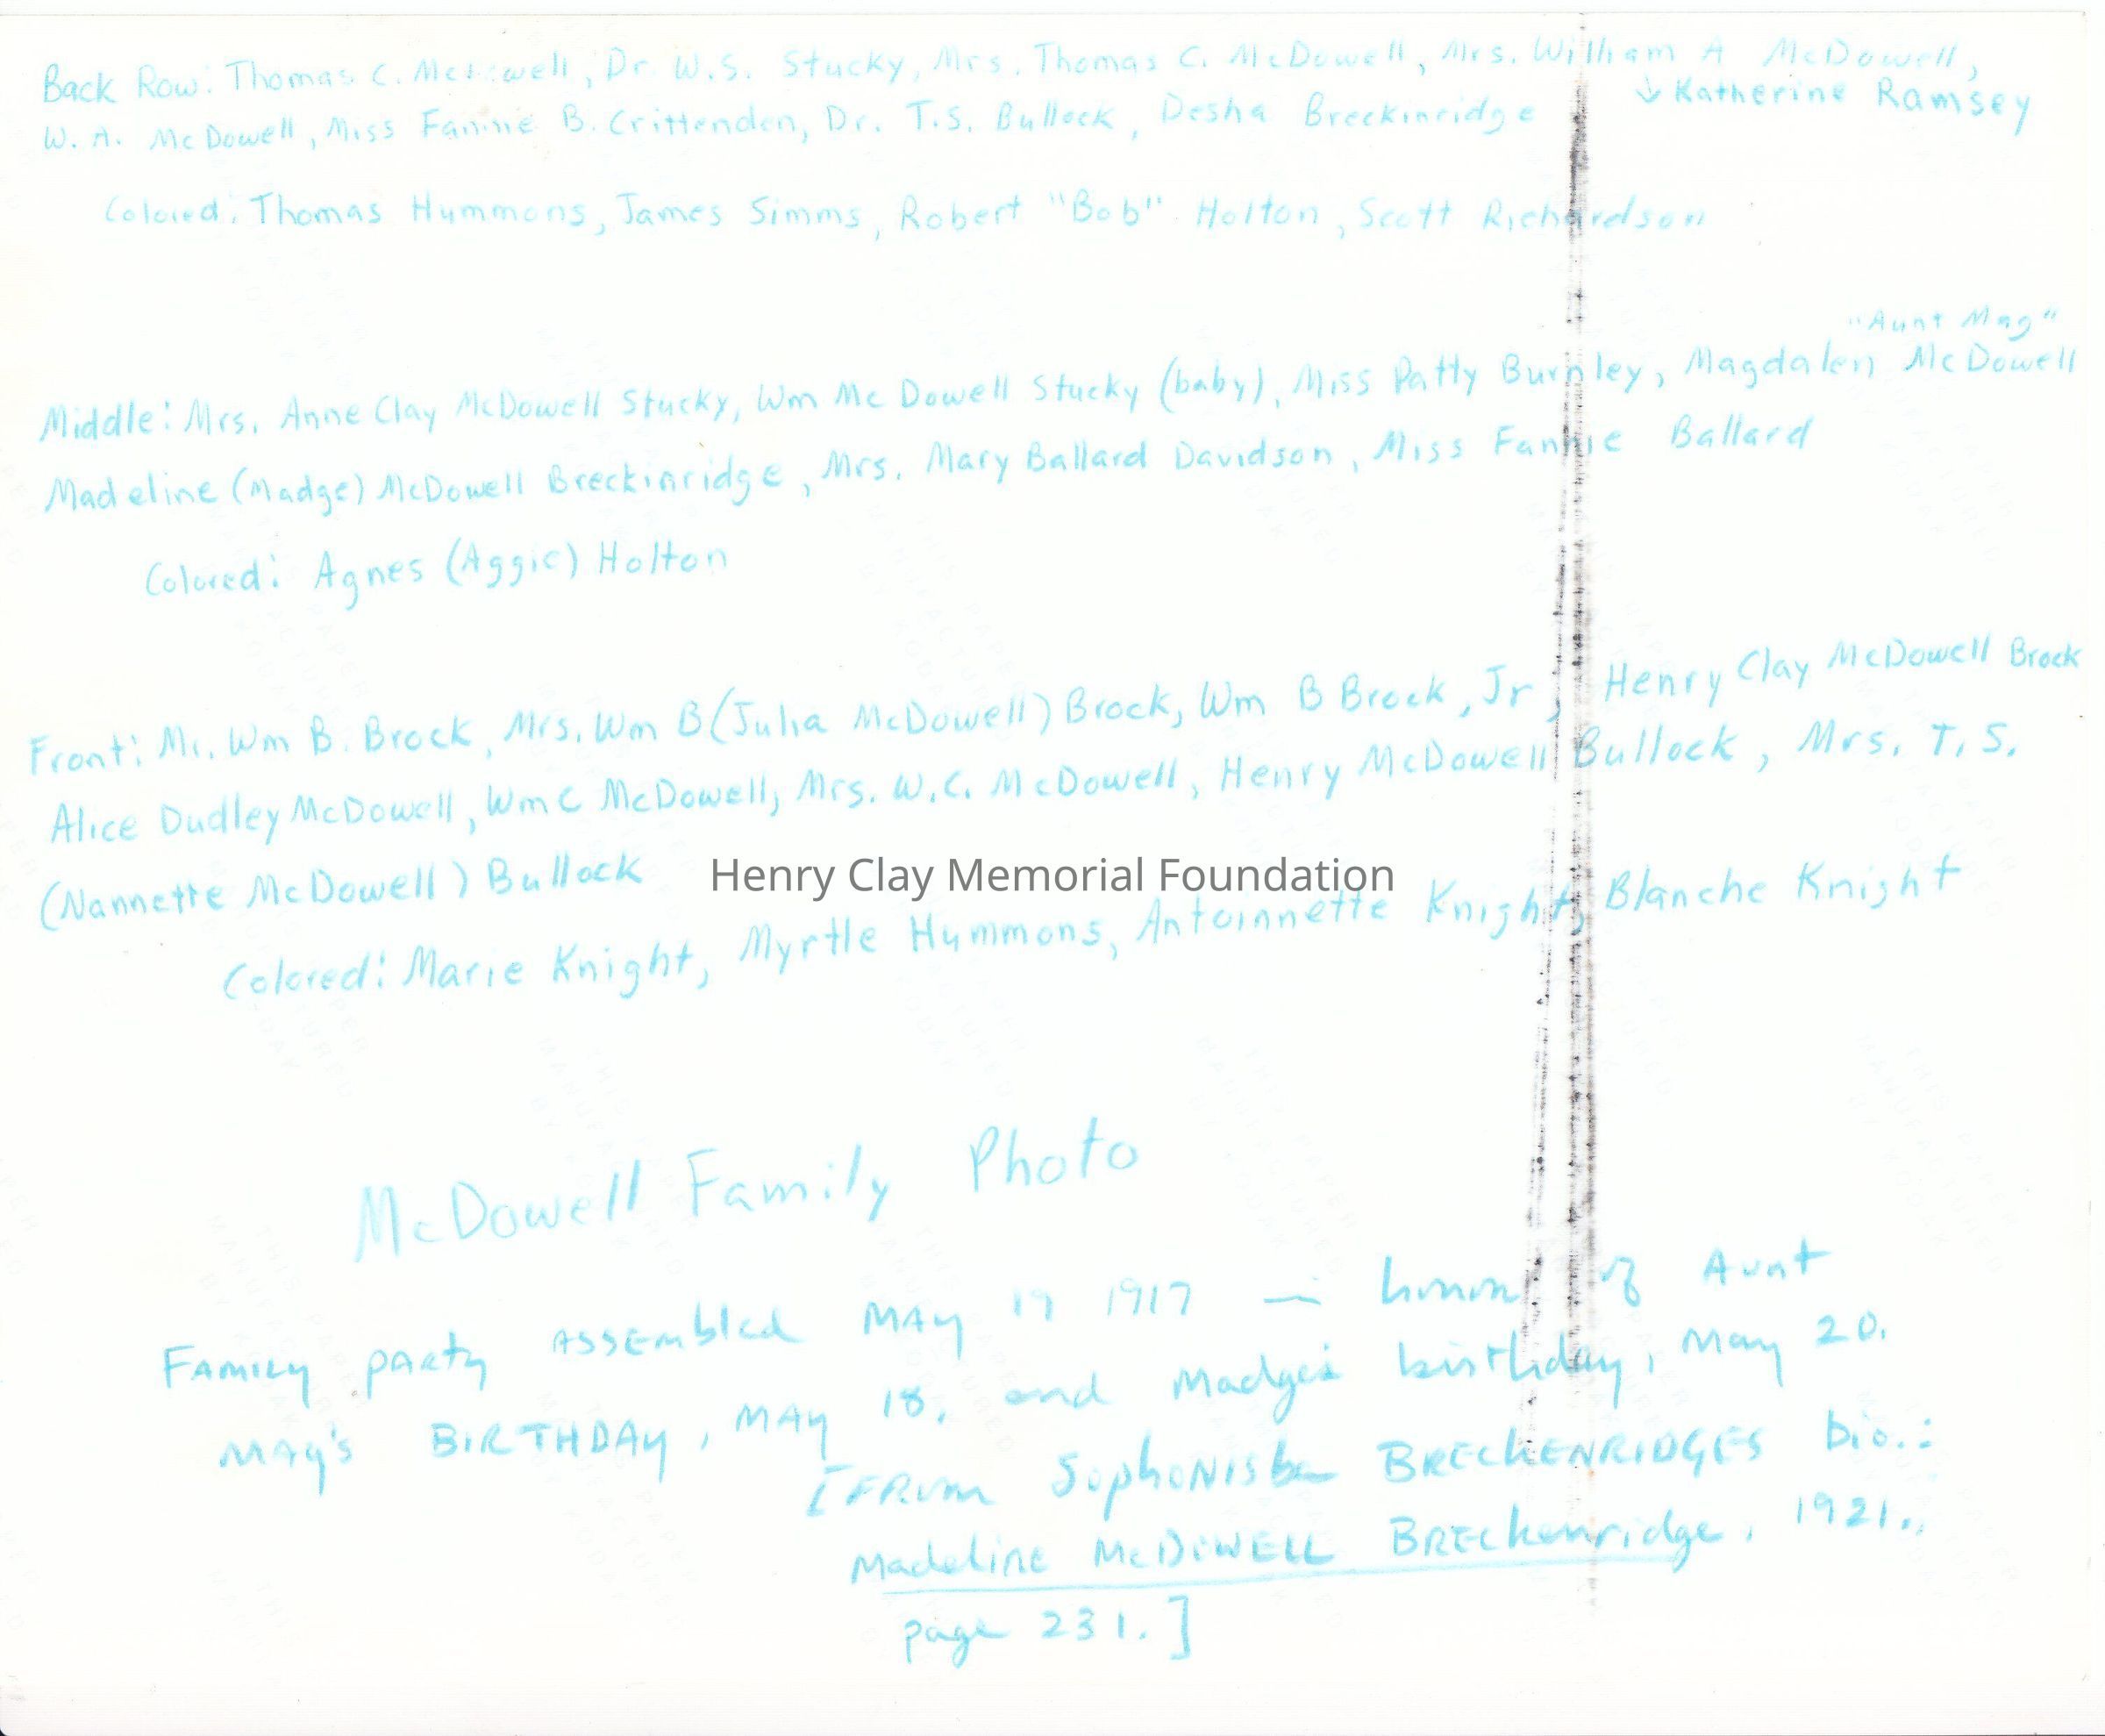 Back Row: Thomas C. McDowell, Dr. W.S. Stucky, Mrs. Thomas C. McDowell, Mrs. William A McDowell,
↓ Katherine Ramsey
W. A. McDowell, Miss Fannie B. Crittenden, Dr. T.S. Bullock, Desha Breckinridge
Colored: Thomas Hummons, James Simms, Robert "Bob" Holton, Scott Richardson
"Aunt Mag"
Middle: Mrs. Anne Clay McDowell Stucky, Wm McDowell Stucky (baby), Miss Patty Burnley, Magdalen McDowell
Madeline (Madge) McDowell Breckinridge, Mrs. Mary Ballard Davidson, Miss Fannie Ballard
Colored: Agnes (Aggie) Holton
Front: Mr. Wm B. Brock, Mrs. Wm B (Julia McDowell) Brock, Wm B Brock, Jr, Henry Clay McDowell Brock
Alice Dudley McDowell, Wm C McDowell, Mrs. W.C. McDowell, Henry McDowell Bullock, Mrs. T.S.
(Nannette McDowell) Bullock
Henry Clay Memorial Foundation
Colored: Marie Knight, Myrtle Hummons, Antoinnette Knight, Blanche Knight
McDowell Family Photo
Family party assembled May 19 1917 — honor of Aunt
May's BIRTHDAY, May 18, and Madge's birthday, May 20.
[From Sophonisba BRECKENRIDGES bio.:
Madeline McDOWELL BRECkenridge, 1921.,
page 231.]